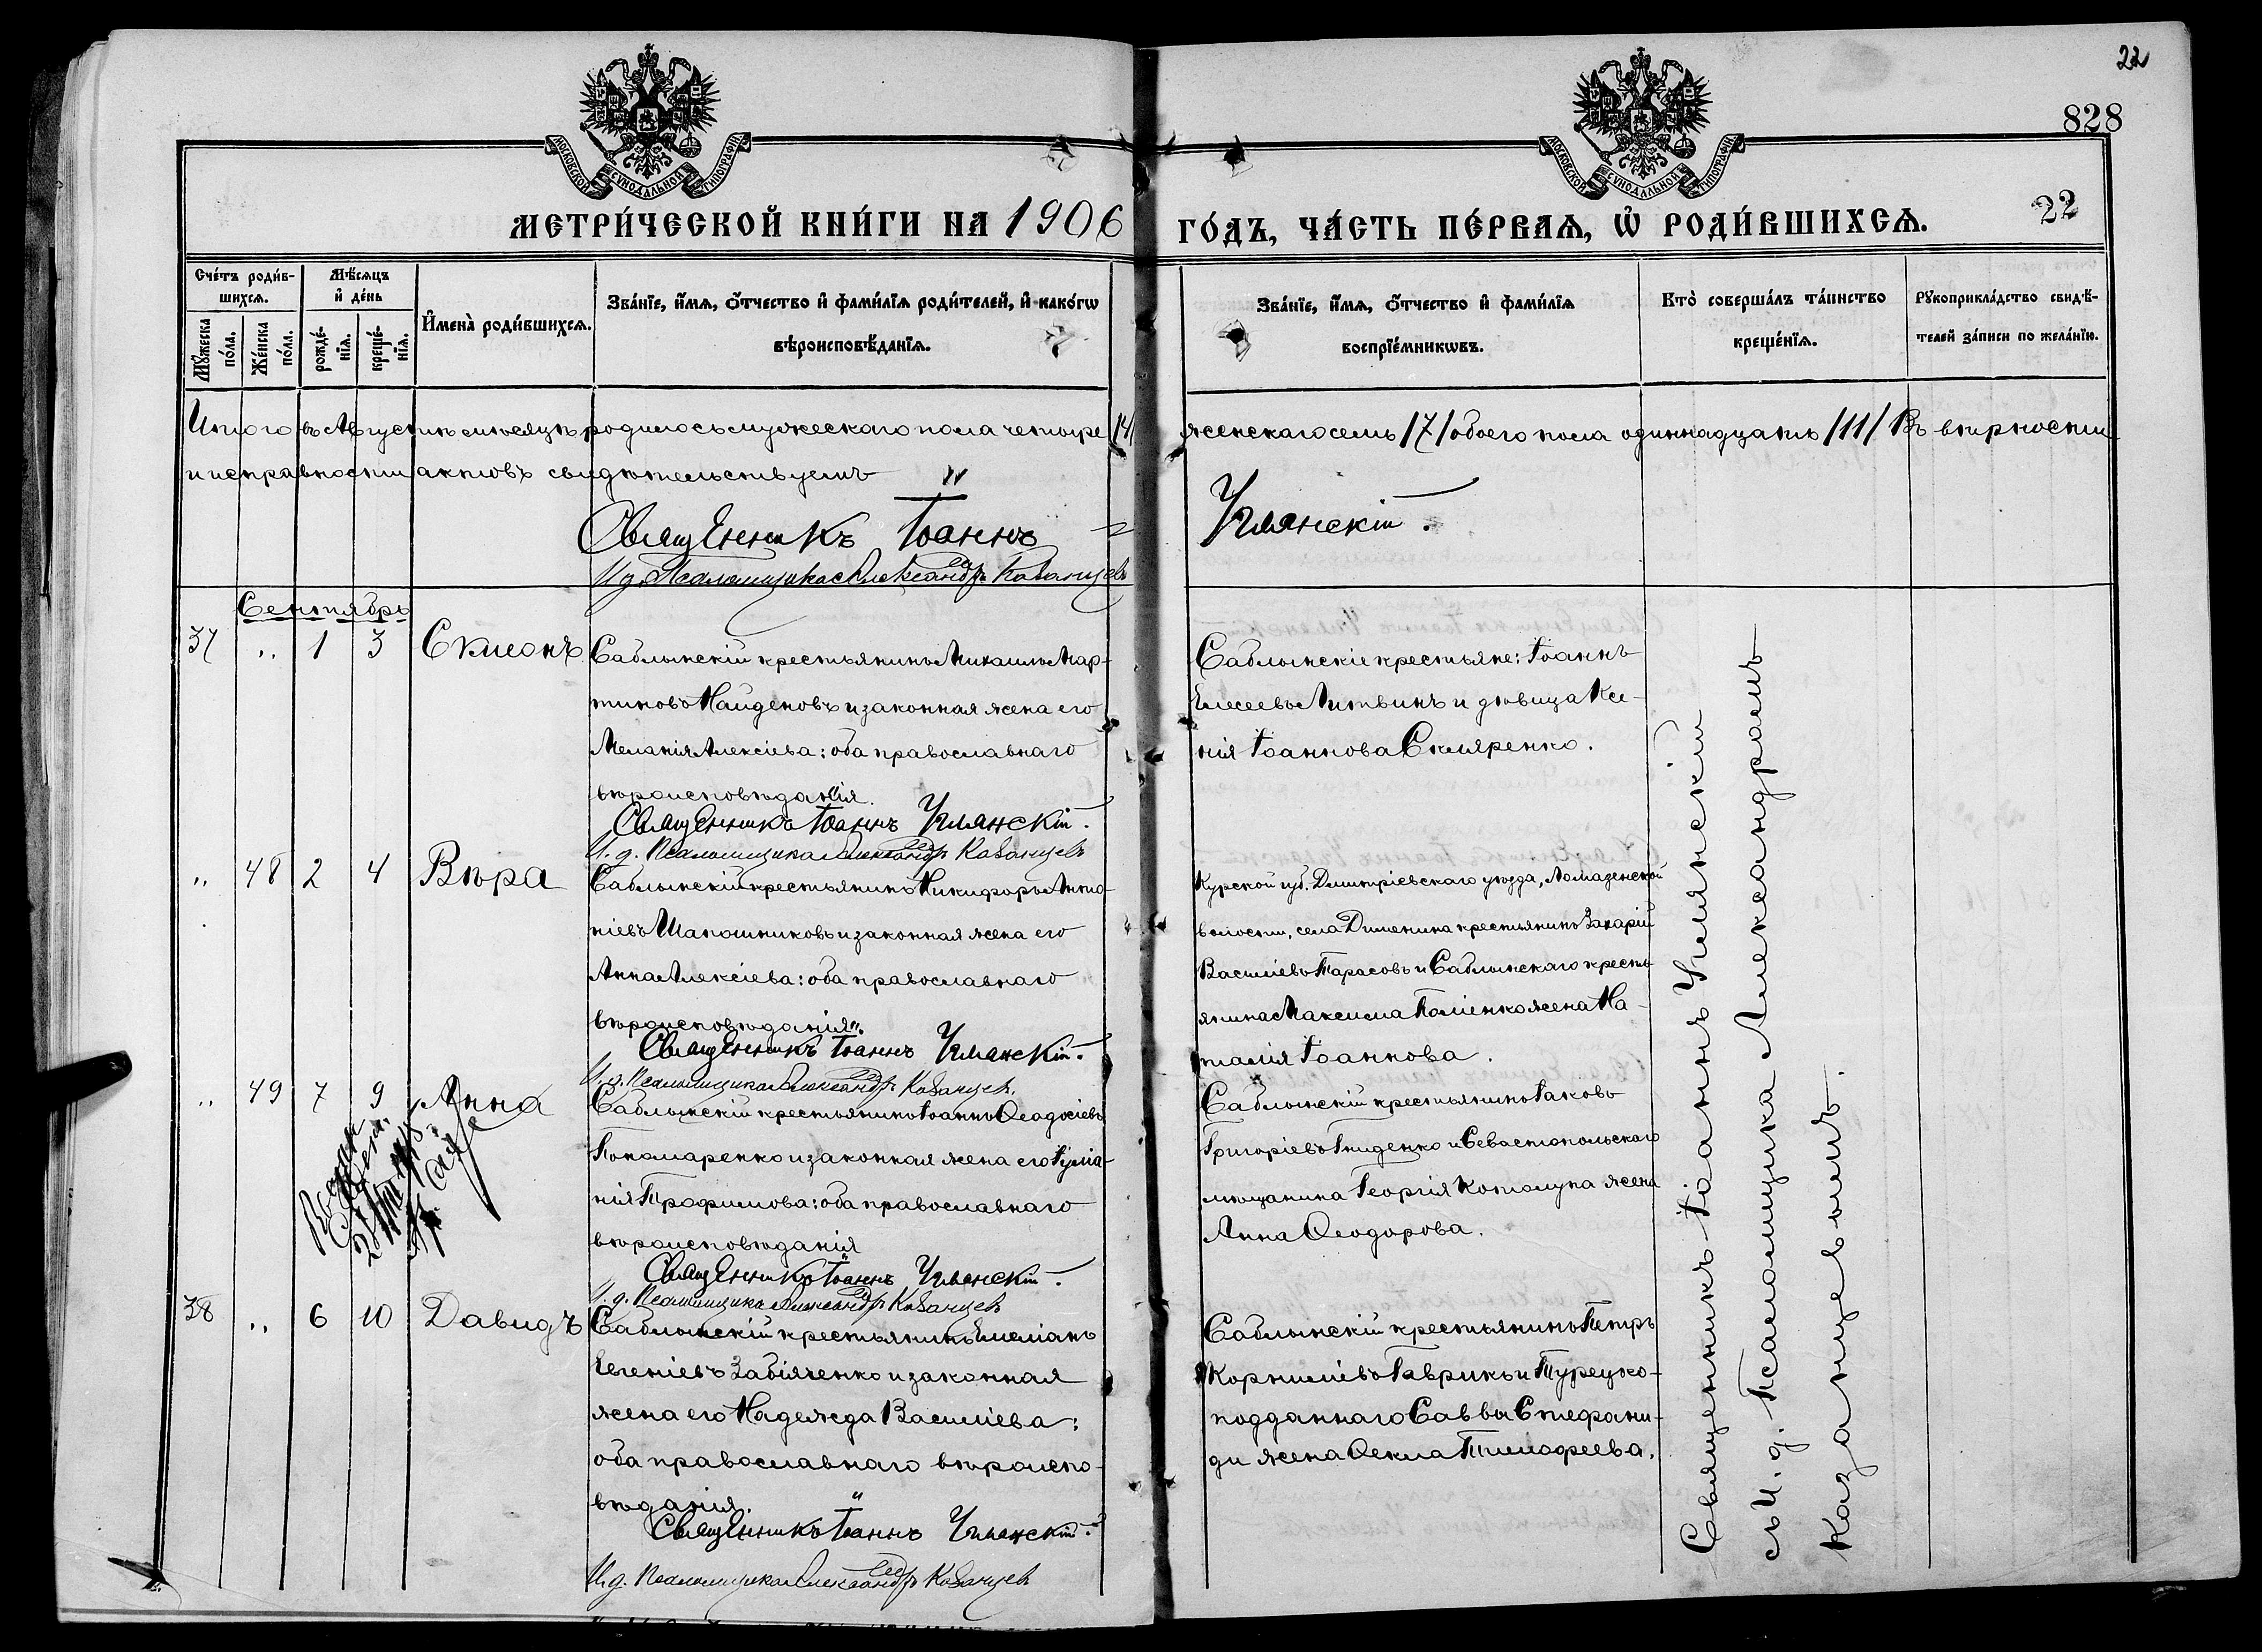 22
828
22
МОСКОВСКОЙ СѴНОДАЛЬНОЙ ТИПОГРАФІИ
МОСКОВСКОЙ СѴНОДАЛЬНОЙ ТИПОГРАФІИ
МЕТРИ́ЧЕСКОЙ КНИ́ГИ НА 1906 ГО́ДЪ, ЧА́СТЬ ПЕ́РВАѦ, Ѡ҆ РОДИ́ВШИХСѦ.
Сче́тъ роди́в-
шихсѧ.
Мꙋ́жеска по́ла.
Же́нска по́ла.
Мѣ́сѧцъ
и҆ де́нь
рожде́-
нїѧ.
креще́-
нїѧ.
И҆мена̀ роди́вшихсѧ.
Зва́нїе, и҆́мѧ, ѻ҆́тчество и҆ фами́лїѧ роди́телей, и҆ како́гѡ
вѣроисповѣ́данїѧ.
Зва́нїе, и҆́мѧ, ѻ҆́тчество и҆ фами́лїѧ
воспрїе́мникѡвъ.
Кто̀ соверша́лъ та́инство
креще́нїѧ.
Рꙋкоприкла́дство свидѣ́-
телей за́писи по жела́нїю.
Итого въ Августѣ мѣсяцѣ родилось мужескаго пола четыре /4/ женскаго семь /7/ обоего пола одиннадцать /11/ Въ вѣрности
и исправности актовъ свидѣтельствуемъ
Священникъ Іоаннъ Углянскій.
И. д. Псаломщика Александръ Казанцевъ
Сентябрь
37 „ 1 3 Симеонъ
Саблынскій крестьянинъ Михаилъ Мар-
тиновъ Найденовъ и законная жена его
Меланія Алексіева: оба православнаго
вѣроисповѣданія.
Священникъ Іоаннъ Углянскій.
И. д. Псаломщика Александръ Казанцевъ
Саблынскіе крестьяне: Іоаннъ
Елисеевъ Литвинъ и дѣвица Ксе-
нія Іоаннова Скляренко.
„ 48 2 4 Вѣра
Саблынскій крестьянинъ Никифоръ Анто-
ніевъ Шапошниковъ и законная жена его
Анна Алексіева: оба православнаго
вѣроисповѣданія.
Священникъ Іоаннъ Углянскій.
И. д. Псаломщика Александръ Казанцевъ.
Курской губ. Дмитріевскаго уѣзда,
волости, села крестьянинъ Захарій
Василіевъ Тарасовъ и Саблынскаго кресть-
янина Максима жена На-
талія Іоаннова.
„ 49 7 9 Анна
Саблынскій крестьянинъ Іоаннъ Ѳеодосіевъ
Пономаренко и законная жена его Іуліа-
нія Трофимова: оба православнаго
вѣроисповѣданія
Священникъ Іоаннъ Углянскій.
И. д. Псаломщика Александръ Казанцевъ
Саблынскій крестьянинъ Іаковъ
Григоріевъ Гниденко и Севастопольскаго
мѣщанина Георгія жена
Анна Ѳеодорова.
38 „ 6 10 Давидъ
Саблынскій крестьянинъ Емеліанъ
Евгеніевъ Забіяченко и законная
жена его Надежда Василіева:
оба православнаго вѣроиспо-
вѣданія.
Священникъ Іоаннъ Углянскій.
И. д. Псаломщика Александръ Казанцевъ
Саблынскій крестьянинъ Петръ
Корниліевъ Гаврикъ и Турецко-
подданнаго Саввы Стефани-
ди жена Ѳекла Тимофеева.
Священникъ Іоаннъ Углянскій
съ И. д. Псаломщика Александромъ
Казанцевымъ.